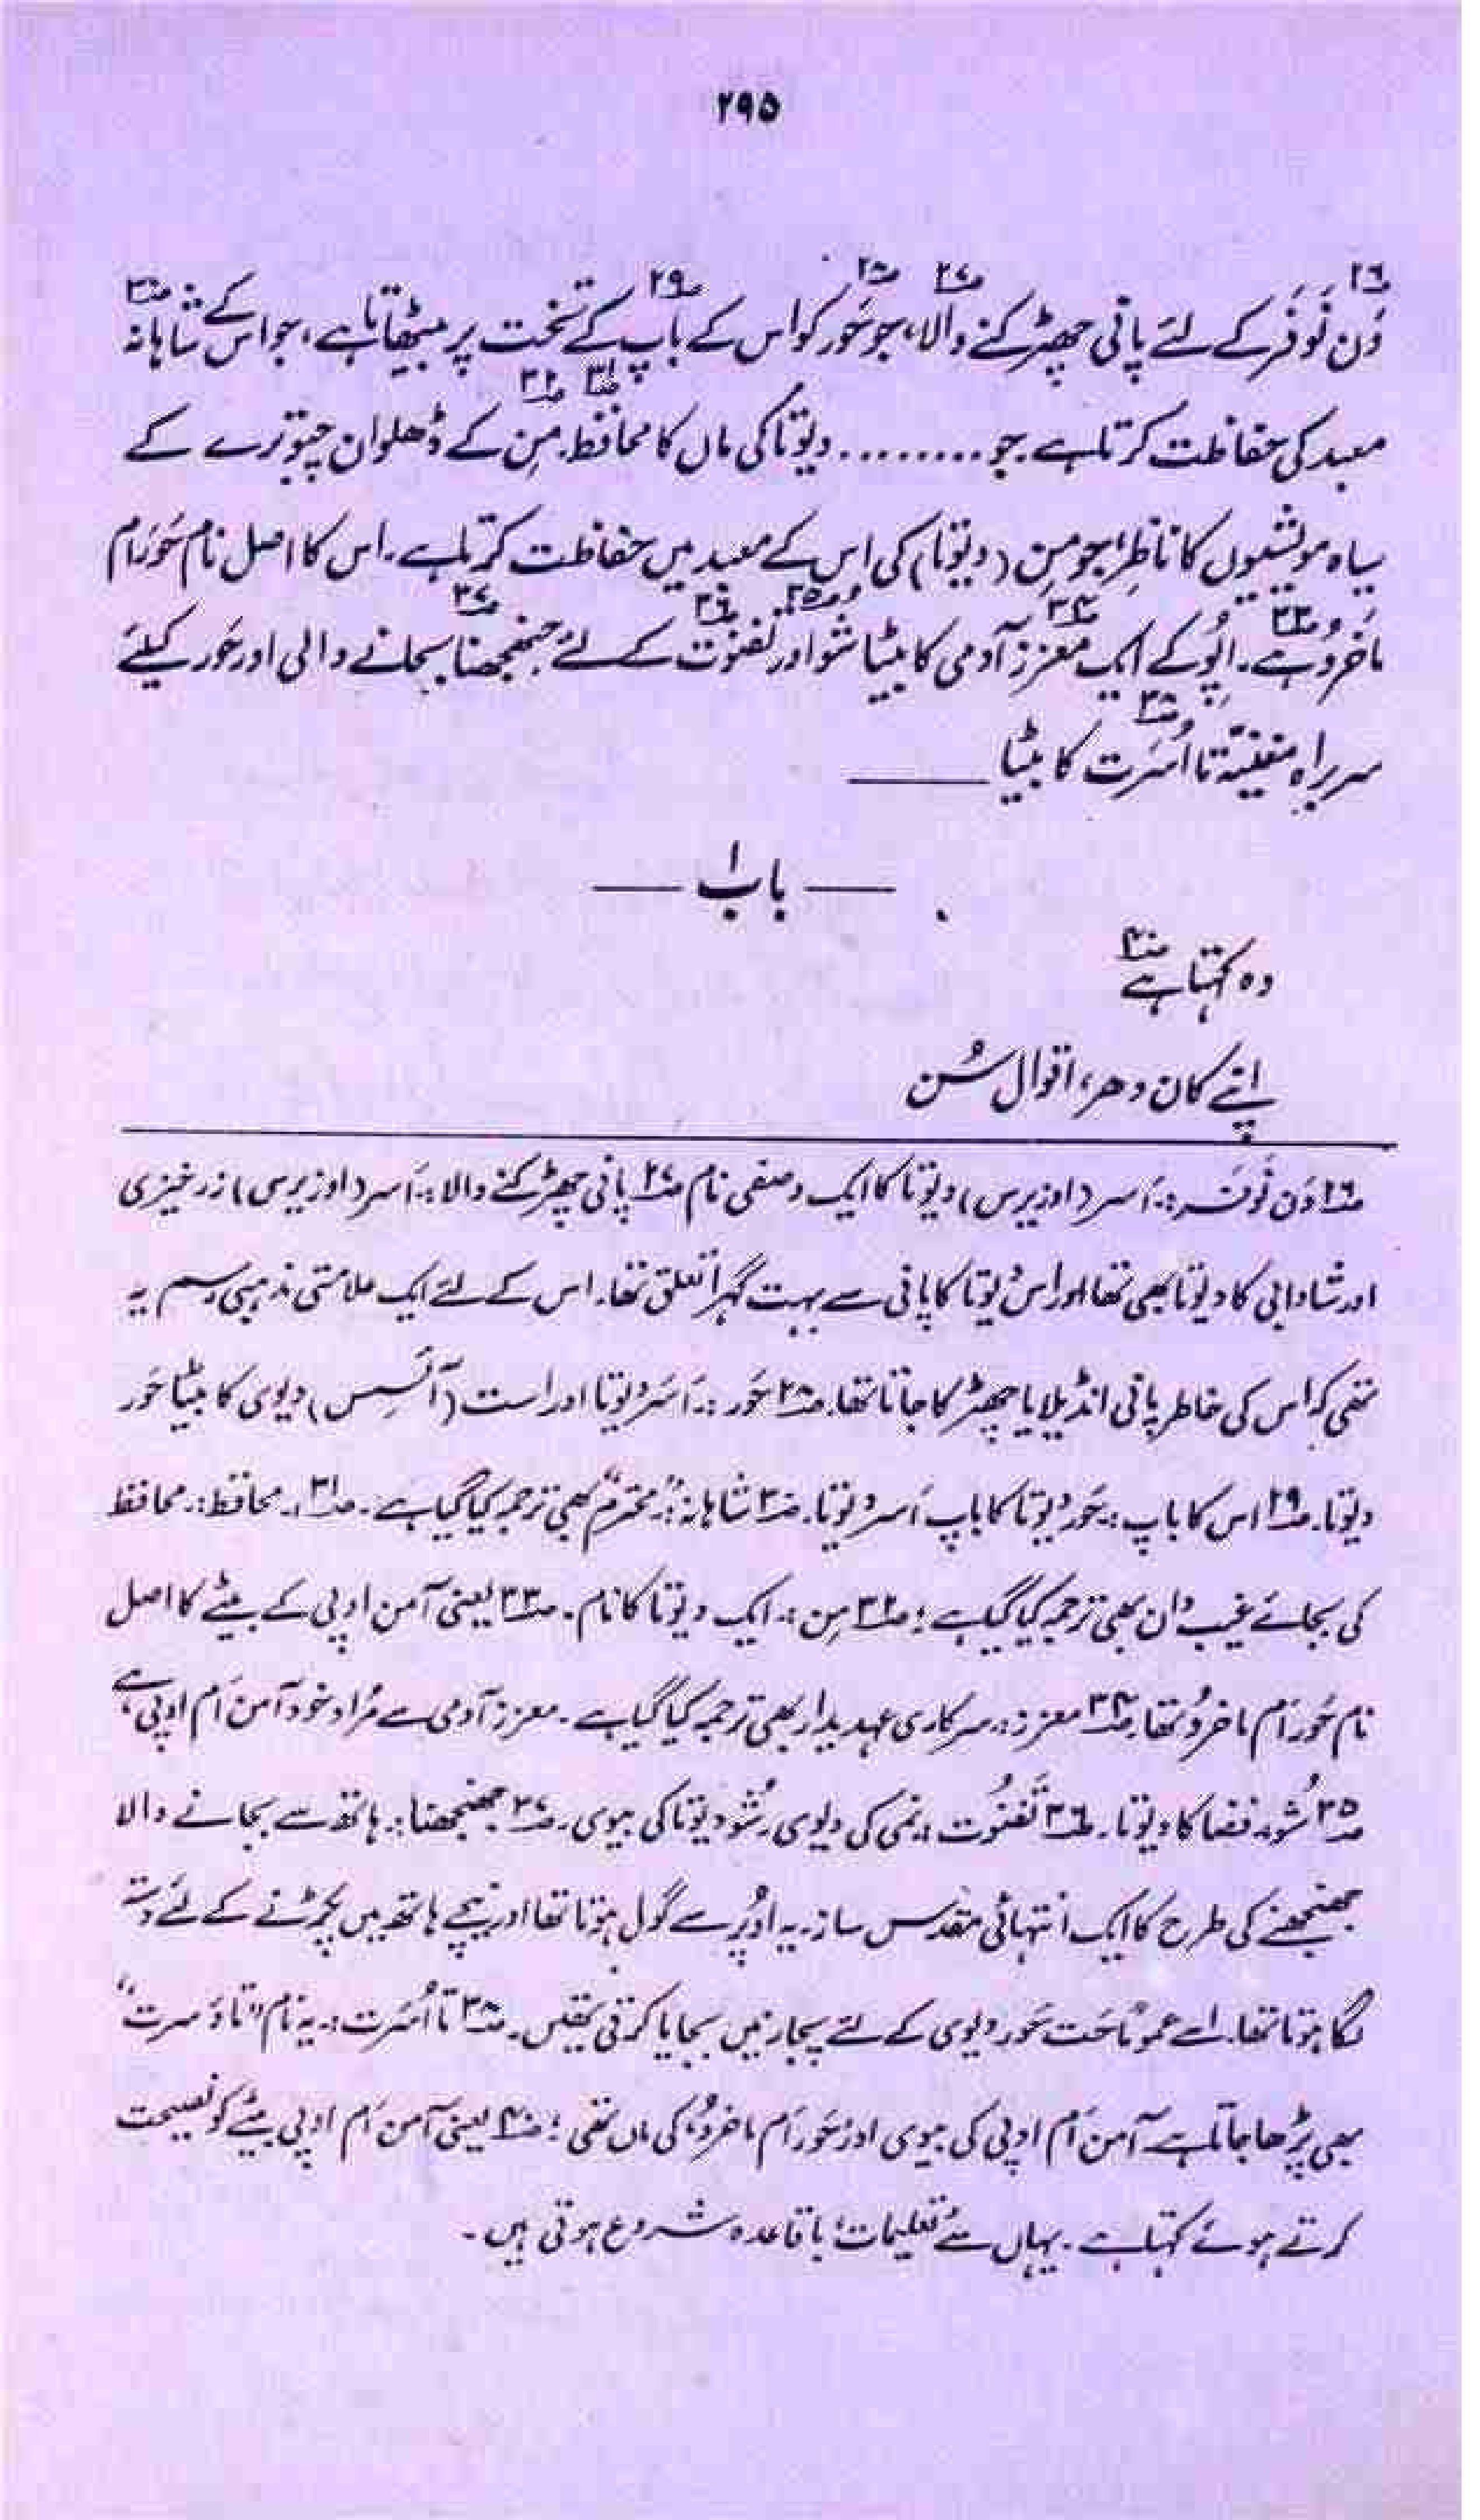 ۲۹۵
وَن نَو فَر کے لئے پانی چھڑکنے والا، جو حَور کو اس کے باپ کے تخت پر بیٹھاتا ہے، جو اس کے شاہانہ
معبد کی حفاظت کرتا ہے جو ........ دیوتا کی ماں کا محافظ۔ مِن کے ڈھلوان چبوترے کے
سیاہ مویشیوں کا ناظِر، جو مِن (دیوتا) کی اس کے معبد میں حفاظت کرتا ہے۔ اس کا اصل نام حَور اَم
مَاخرُو ہے۔ اِپُو کے ایک معزز آدمی کا بیٹیا شُو اور تفنُوت کے لئے جھنجھنا بجانے والی اور حَور کیلئے
سربراہ مغنیّہ تا اُسَرت کا بیٹیا ———
— باب ۱ —
وہ کہتا ہے ۴۰
اپنے کان دھر، اقوال سُن
۲۶ وَن نَوفَر:۔ اَسر (اوزیرس) دیوتا کا ایک وصفی نام ۲۷ پانی چھڑکنے والا:۔ اَسر (اوزیرس) زرخیزی
اور شادابی کا دیوتا بھی تھا اور اس دیوتا کا پانی سے بہت گہرا تعلق تھا۔ اس کے لئے ایک علامتی مذہبی رسم یہ
تھی کہ اس کی خاطر پانی انڈیلا یا چھڑکا جاتا تھا۔ ۲۸ حَور:۔ اَسَر دیوتا اور است (آئسِس) دیوی کا بیٹا حَور
دیوتا۔ ۲۹ اس کا باپ:۔ حَور دیوتا کا باپ اَسر دیوتا۔ ۳۰ شاہانہ:۔ "محترم" بھی ترجمہ کیا گیا ہے۔ ۳۱۔ محافظ:۔ محافظ
کی بجائے غیب دان بھی ترجمہ کیا گیا ہے؛ ۳۲ مِن:۔ ایک دیوتا کا نام۔ ۳۳ یعنی آمن اوپی کے بیٹے کا اصل
نام حَور اَم ماخرُو تھا۔ ۳۴ معزز:۔ سرکاری عہدیدار بھی ترجمہ کیا گیا ہے۔ معزز آدمی سے مُراد خود آمن اَم اوپی ہے
۳۵ شُو:۔ فضا کا دیوتا۔ ۳۶ تَفنُوت:۔ نمی کی دیوی۔ شُو دیوتا کی بیوی۔ ۳۷ جھنجھنا:۔ ہاتھ سے بجانے والا
جھنجھنے کی طرح کا ایک انتہائی مقدس ساز۔ یہ اوپر سے گول ہوتا تھا اور نیچے ہاتھ میں پکڑنے کے لئے دستہ
لگا ہوتا تھا۔ اسے عموماً حَت حَور دیوی کے لئے پجارنیں بجایا کرتی تھیں۔ ۳۸ تا اُسَرت:۔ یہ نام "تاؤ سرت"
بھی پڑھا جاتا ہے آمن اَم اوپی کی بیوی اور حَور اَم ماخرو، کی ماں تھی؛ ۴۰ یعنی آمن اَم اوپی بیٹے کو نصیحت
کرتے ہوئے کہتا ہے۔ یہاں سے تعلیمات، باقاعدہ شروع ہوتی ہیں۔